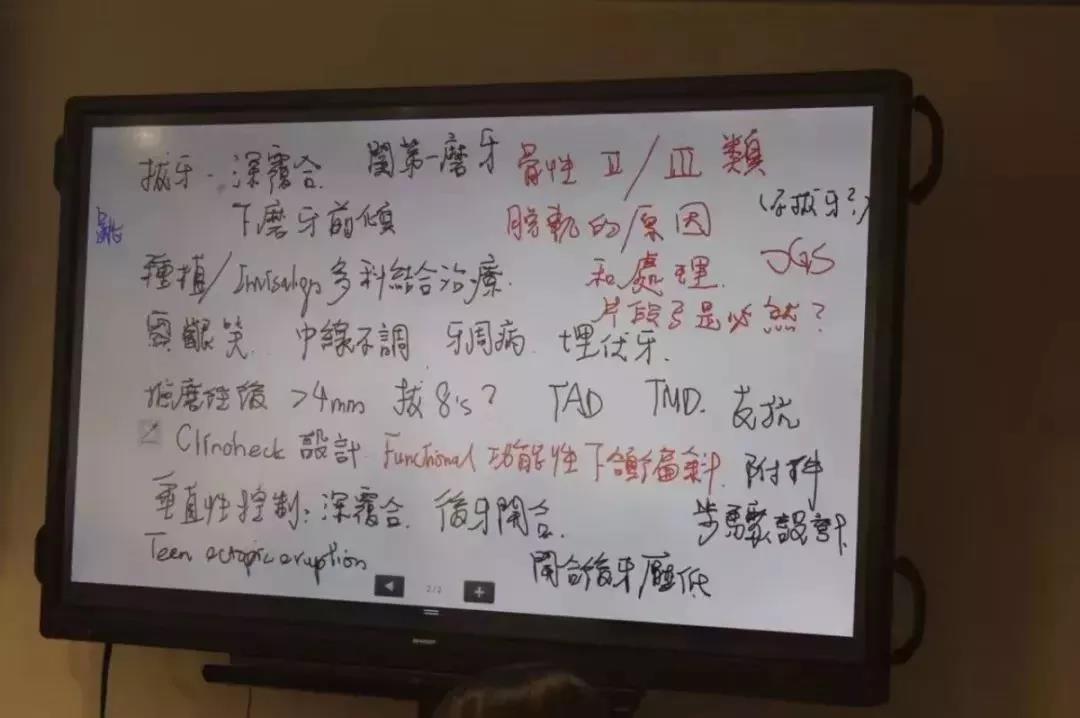 拔牙、深覆合 關第一磨牙 骨性 II/III 類
下磨牙前傾 脫軌的原因 (不拔牙?)
種植/Invisalign多科結合治療. 和處理. OGS
片段弓是必然?
露齦笑. 中線不調 牙周病. 埋伏牙.
推磨往後 >4mm 拔8's? TAD TMD. 支抗
Clincheck 設計 Functional 功能性下頷偏斜 附件
垂直性控制: 深覆合. 後牙開合. 步驟設計.
Teen ectopic eruption 開合後牙壓低
2/2
SHARP